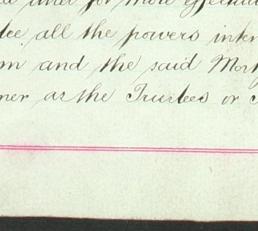 for more effectual
all the powers
and the said Mort
ner as the Trustees or